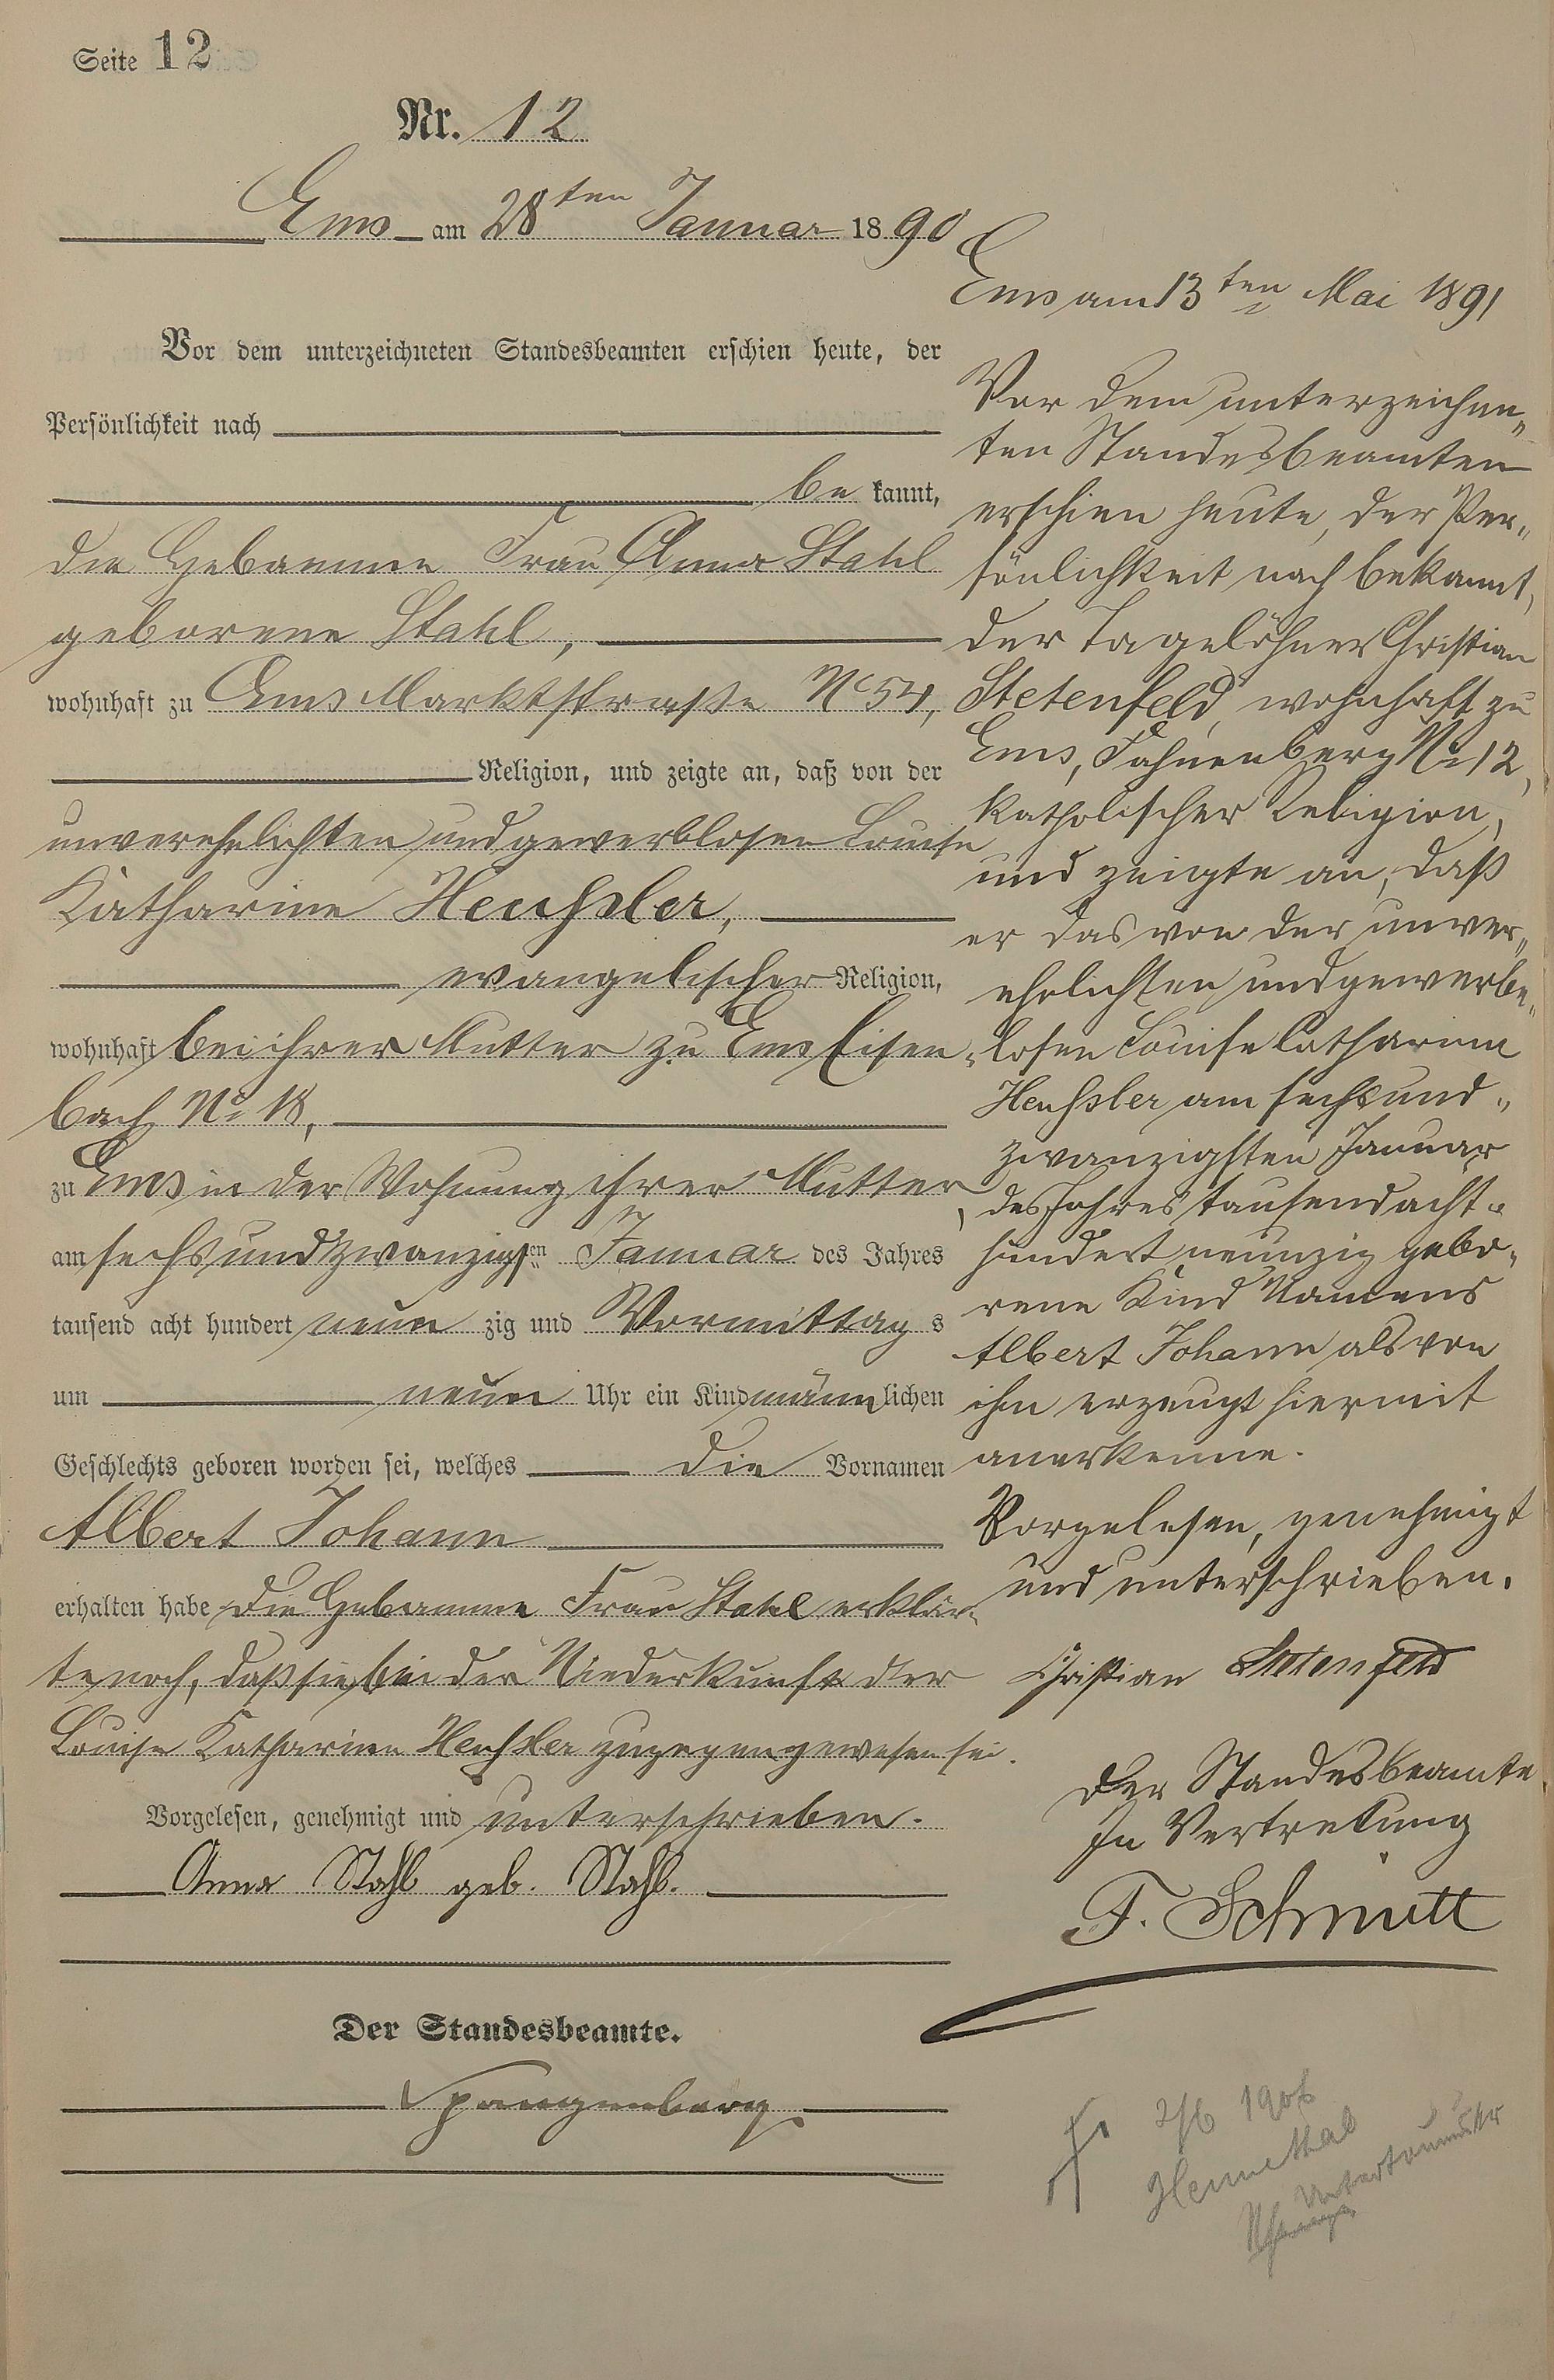 Seite 12
Nr. 12
Ems am 28ten Januar 1890
Vor dem unterzeichneten Standesbeamten erschien heute, der
Persönlichkeit nach
be kannt,
die Hebamme Frau Anna Stahl
geborene Stahl,
wohnhaft zu Ems Marktstraße No 54,
Religion, und zeigte an, daß von der
unverehelichten und gewerblosen Louise
Katharine Heuhsler,
evangelischer Religion,
wohnhaft bei ihrer Mutter zu Ems Eisen-
bach No 18,
zu Ems in der Wohnung ihrer Mutter,
am sechs und zwanzigsten Januar des Jahres
tausend acht hundert neun zig und Vormittag s
um neun Uhr ein Kind männlichen
Geschlechts geboren worden sei, welches die Vornamen
Albert Johann
erhalten habe Die Hebamme Frau Stahl erklär-
te noch, daß sie bei der Niederkunft der
Louise Katharina Heuhsler zugegen gewesen sei.
Vorgelesen, genehmigt und unterschrieben.
Anna Stahl geb. Stahl.
Der Standesbeamte.
Spangenberg
Ems am 13ten Mai 1891
Vor dem unterzeichne-
ten Standesbeamten
erschien heute, der Per-
sönlichkeit nach bekannt,
der Tagelöhner Christian
Stetenfeld, wohnhaft zu
Ems, Fahnenberg No 12,
katholischer Religion,
und zeigte an, daß
er das von der unver-
ehelichten und gewerbe-
losen Louise Catharina
Heuhsler am sechsund-
zwanzigsten Januar
des Jahres tausendacht-
hundert neunzig gebo-
rene Kind Namens
Albert Johann als von
ihm erzeugt hiermit
anerkenne.
Vorgelesen, genehmigt
und unterschrieben.
Christian Stetenfeld
Der Standesbeamte
In Vertretung
F. Schmitt
2/6 1906
Hennethal
Untertaunuskr